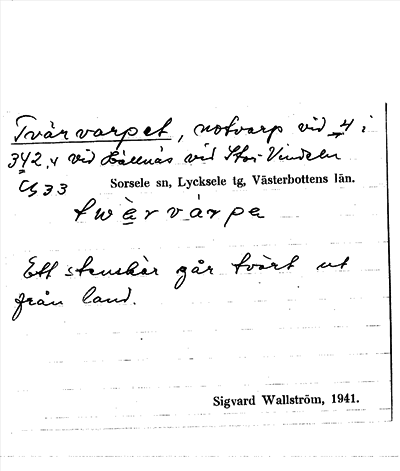 Tvärvarpet, notvarp vid 4 i
342, v vid Hällnäs vid Stor-Vindeln
C533
Sorsele sn, Lycksele tg, Västerbottens län.
twèrvárpe
Ett stenskär går tvärt ut
från land.
Sigvard Wallström, 1941.